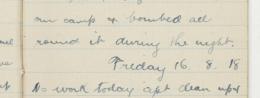 our camp & bombed all
round it during the night.
Friday 16. 8. 18
No work today apt clean up